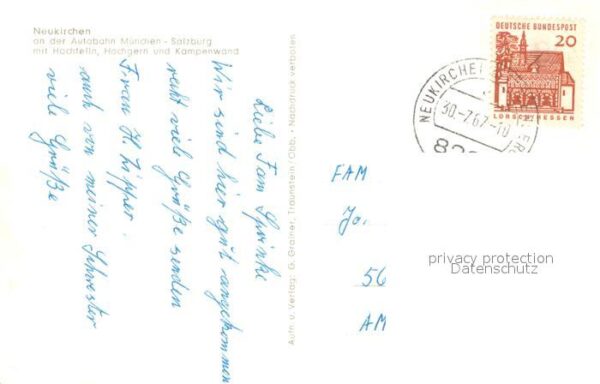 Neukirchen
an der Autobahn München - Salzburg
mit Hochfelln, Hochgern und Kampenwand
Liebe Fam
Wir sind hier gut angekommen
recht viele Grüße senden
Frau H. Zipper.
auch von meiner Schwester
viele Grüße
Aufn. u. Verlag: G. Grainer, Traunstein/Obb. - Nachdruck verboten
DEUTSCHE BUNDESPOST
20
LORSCH/HESSEN
NEUKIRCHEN
30.-7.67-10
FAM
Jo.
56
AM
privacy protection
Datenschutz